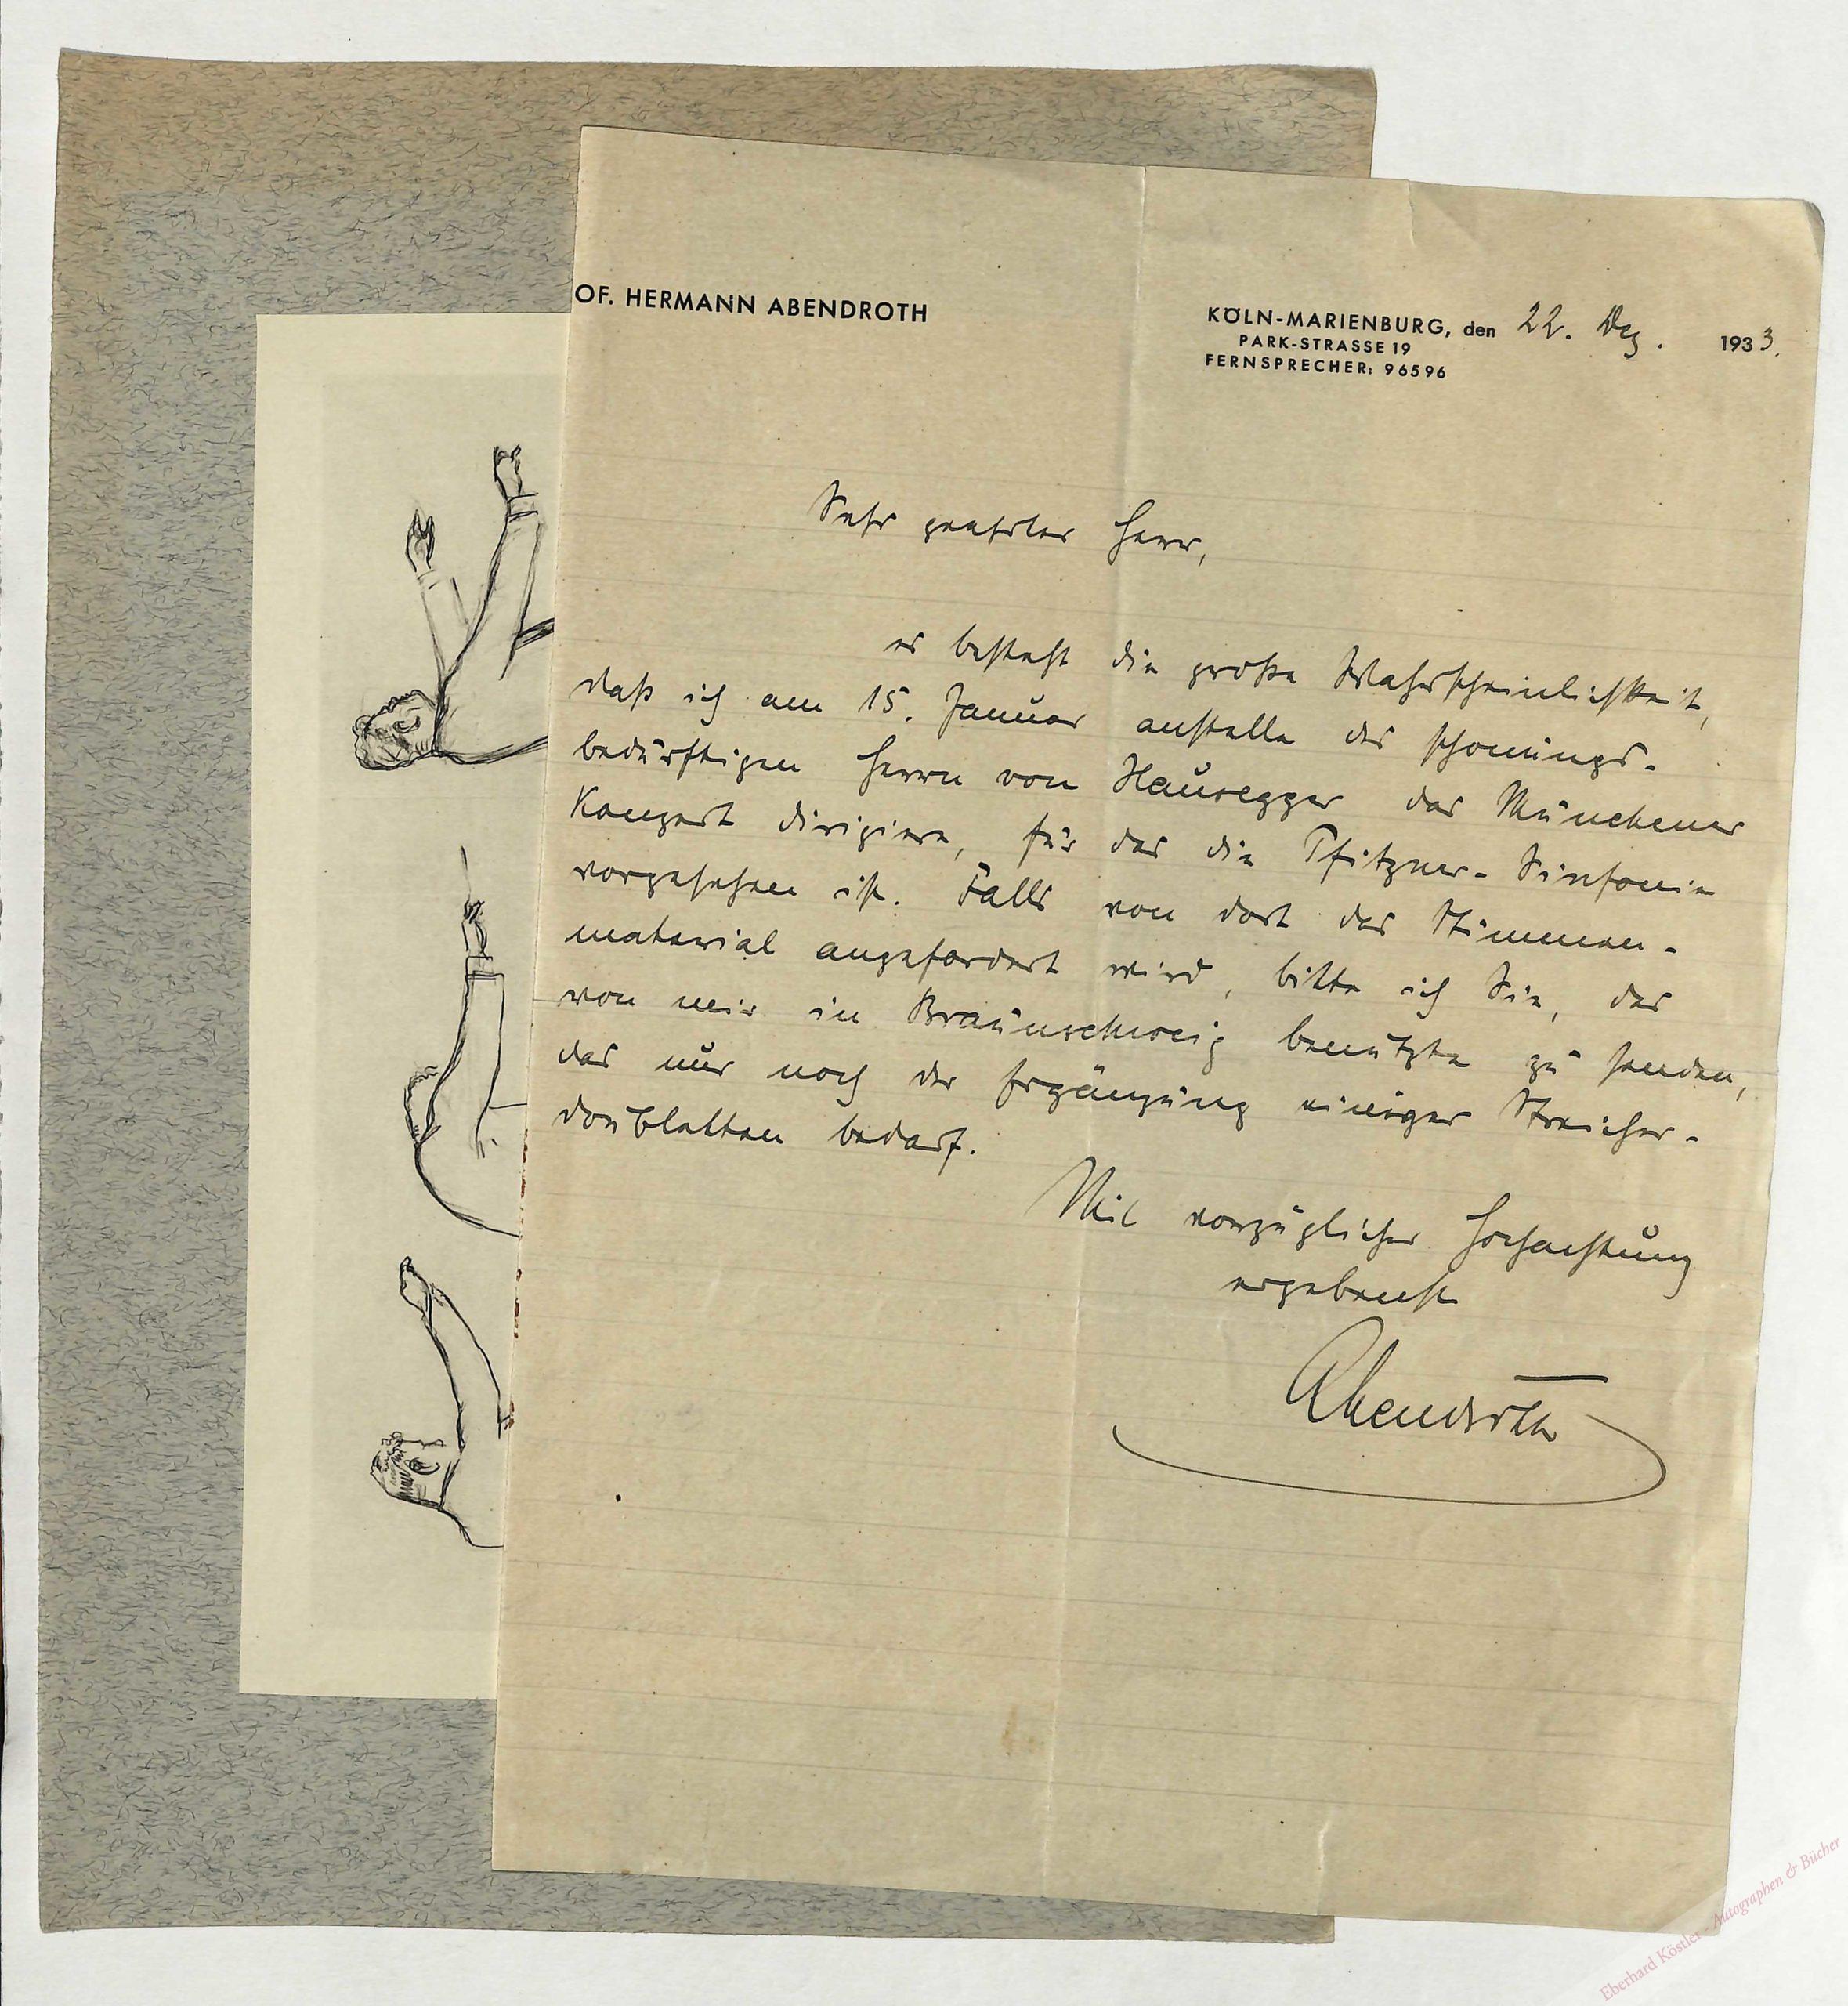 OF. HERMANN ABENDROTH
KÖLN-MARIENBURG, den 22. Dez. 1933.
PARK-STRASSE 19
FERNSPRECHER: 96596
Sehr geehrter Herr,
es besteht die große Wahrscheinlichkeit,
daß ich am 15. Januar anstelle des schonungs-
bedürftigen Herrn von Hausegger das Münchener
Konzert dirigiere, für das die Pfitzner-Sinfonie
vorgesehen ist. Falls von dort das Stimmen-
material angefordert wird, bitte ich Sie, das
von mir in Braunschweig benützte zu senden,
das nur noch der Ergänzung einiger Streicher-
doubletten bedarf.
Mit vorzüglicher Hochachtung
ergebenst
Abendroth
Eberhard Köstler - Autographen & Bücher